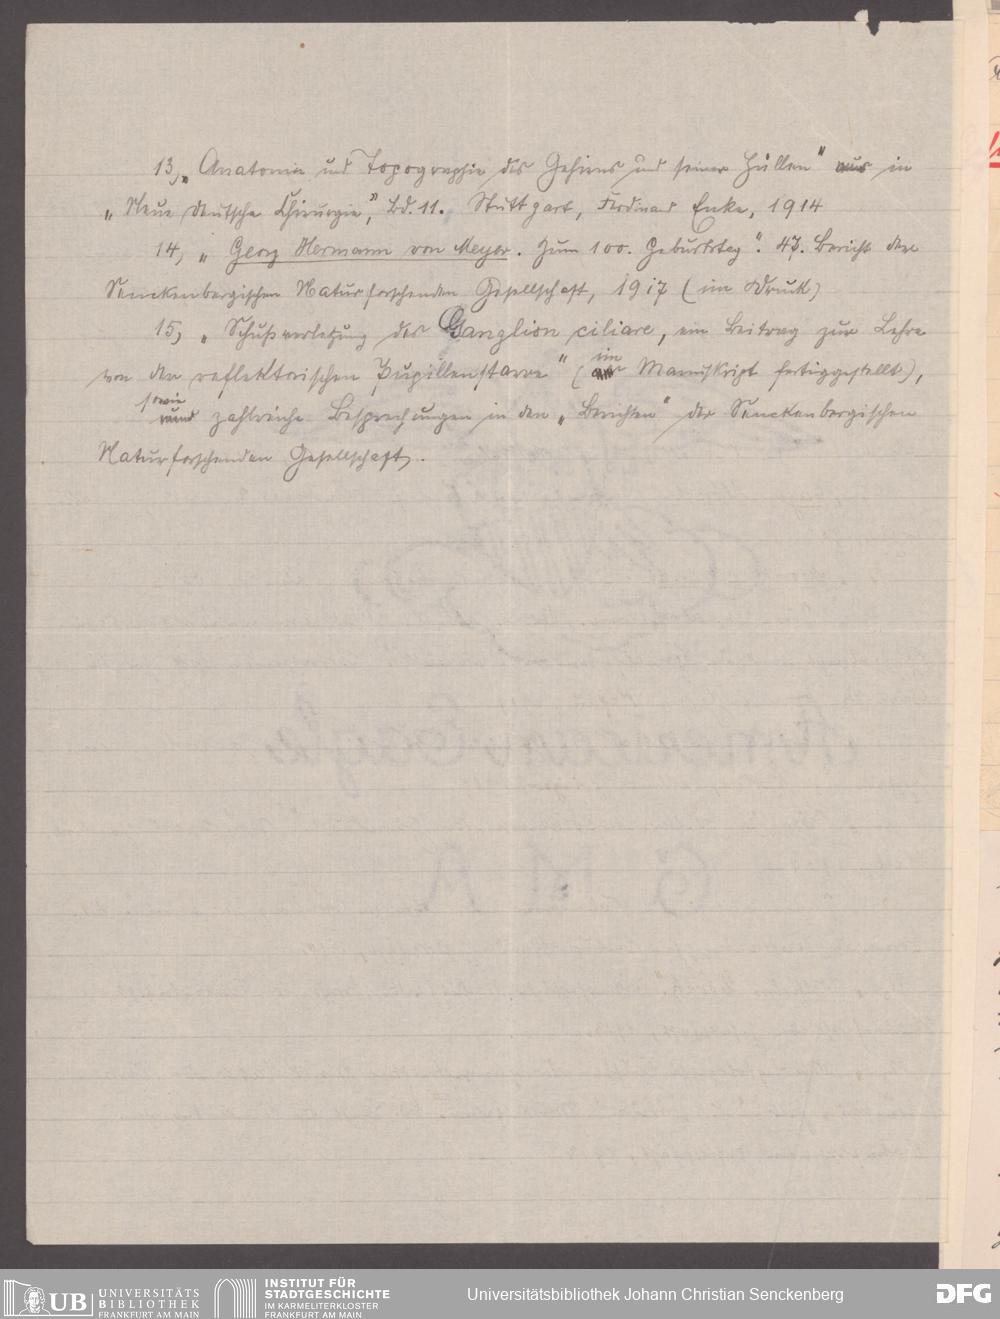 13, „Anatomie und Topographie des Gehirns und seiner Hüllen“ aus in
„Neue deutsche Chirurgie“, Bd. 11. Stuttgart, Ferdinand Enke, 1914
14, „Georg Hermann von Meyer. Zum 100. Geburtstag“. 47. Bericht der
Senckenbergischen Naturforschenden Gesellschaft, 1917 (im Druck)
15, „Schußverletzung des Ganglion ciliare, ein Beitrag zur Lehre
von der reflektorischen Pupillenstarre“ (im Manuskript fertiggestellt),
sowie
und zahlreiche Besprechungen in den „Berichten“ der Senckenbergischen
Naturforschenden Gesellschaft.
UB UNIVERSITÄTS
BIBLIOTHEK
FRANKFURT AM MAIN
INSTITUT FÜR
STADTGESCHICHTE
IM KARMELITERKLOSTER
FRANKFURT AM MAIN
Universitätsbibliothek Johann Christian Senckenberg
DFG